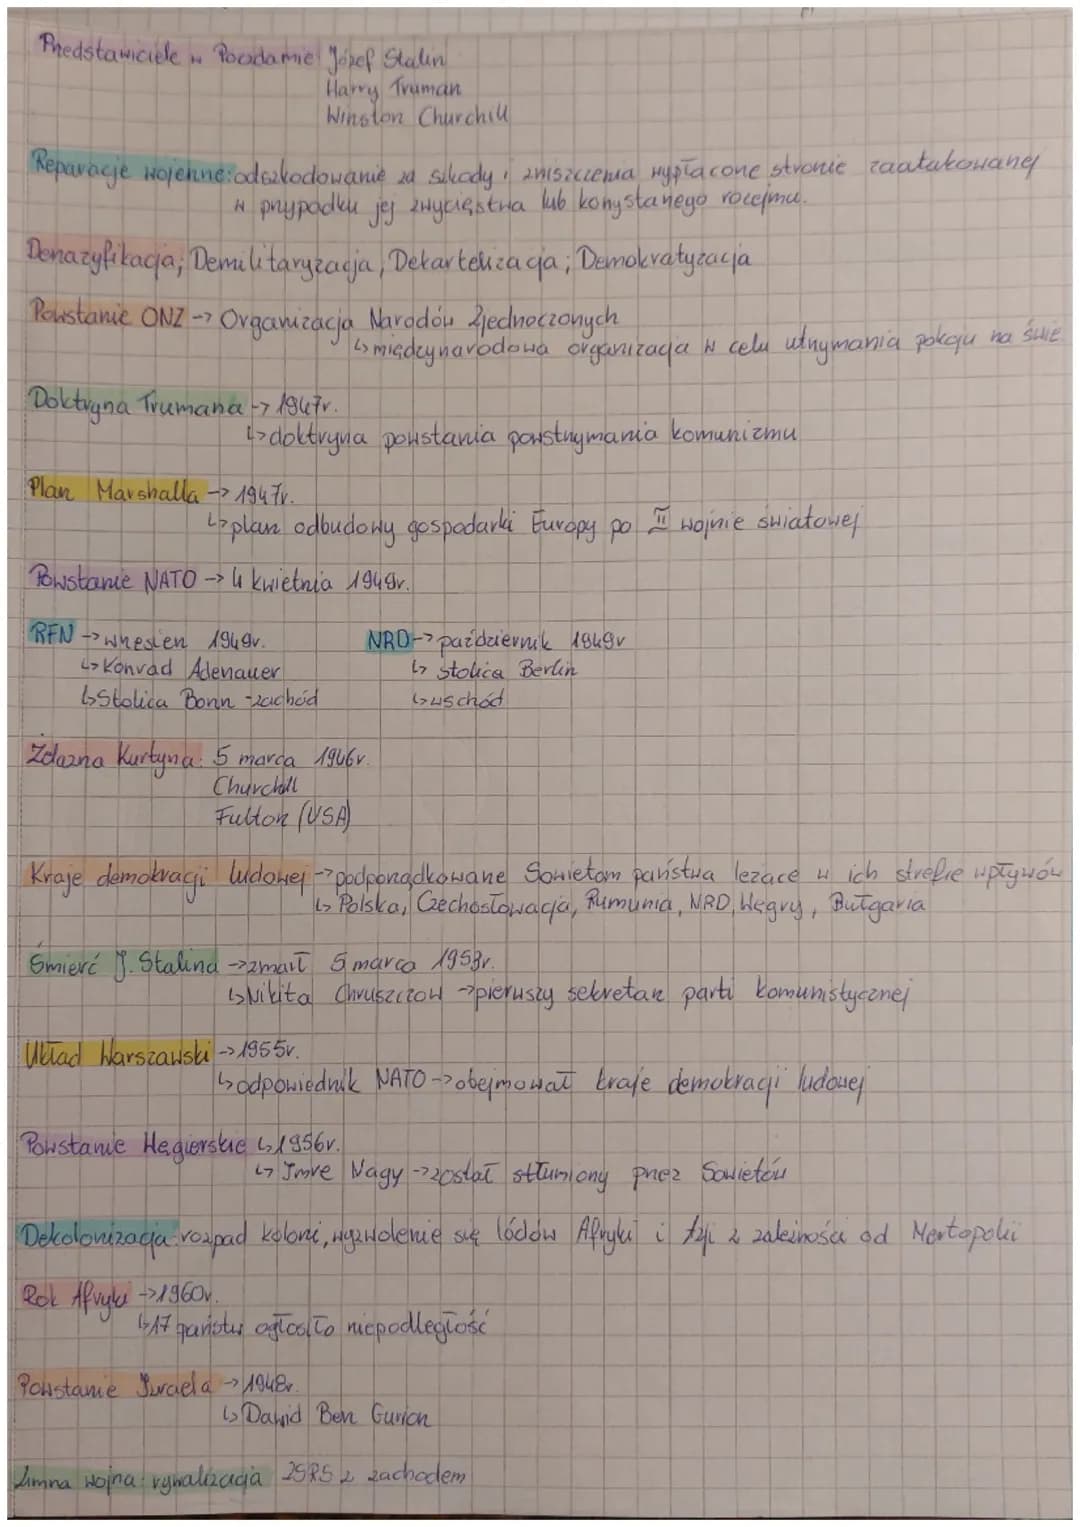 Przedstawiciele w Poczdamie: Józef Stalin
Harry Truman
Winston Churchill
Reparacje wojenne: odszkodowanie za szkody i zniszczenia wypłacone stronie zaatakowanej
w przypadku jej zwycięstwa lub korzystanego rozejmu.
Denazyfikacja; Demilitaryzacja; Dekartelizacja; Demokratyzacja
Powstanie ONZ -> Organizacja Narodów Zjednoczonych
↳ międzynarodowa organizacja w celu utrzymania pokoju na świe
Doktryna Trumana -> 1947r.
↳ doktryna powstania powstrzymania komunizmu
Plan Marshalla -> 1947r.
↳ plan odbudowy gospodarki Europy po II wojnie światowej
Powstanie NATO -> 4 kwietnia 1949r.
RFN -> wrzesień 1949r.
↳ Konrad Adenauer
↳ Stolica Bonn - zachód
NRD -> październik 1949r
↳ stolica Berlin
↳ wschód
Żelazna Kurtyna: 5 marca 1946r.
Churchill
Fulton (USA)
Kraje demokracji ludowej -> podporządkowane Sowietom państwa leżące w ich strefie wpływów
↳ Polska, Czechosłowacja, Rumunia, NRD, Węgry, Bułgaria
Śmierć J. Stalina -> zmarł 5 marca 1953r.
↳ Nikita Chruszczow -> pierwszy sekretarz parti komunistycznej
Układ Warszawski -> 1955r.
↳ odpowiednik NATO -> obejmował kraje demokracji ludowej
Powstanie Węgierskie ↳ 1956r.
↳ Imre Nagy -> został stłumiony przez Sowietów
Dekolonizacja: rozpad koloni, wyzwolenie się lódów Afryki i Azji z zależności od Mertopolii
Rok Afryki -> 1960r.
↳ 17 państw ogłosiło niepodległość
Powstanie Izraela -> 1948r.
↳ Dawid Ben Gurion
Zimna wojna: rywalizacja ZSRS z zachodem